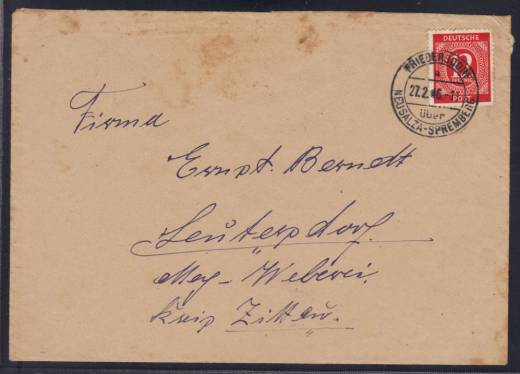 DEUTSCHE
12
POST
FRIEDERSDORF
27.2.46
über
NEUSALZA-SPREMBERG
Firma
Ernst Berndt
Leutersdorf
Mey-Weberei
Kreis Zittau.